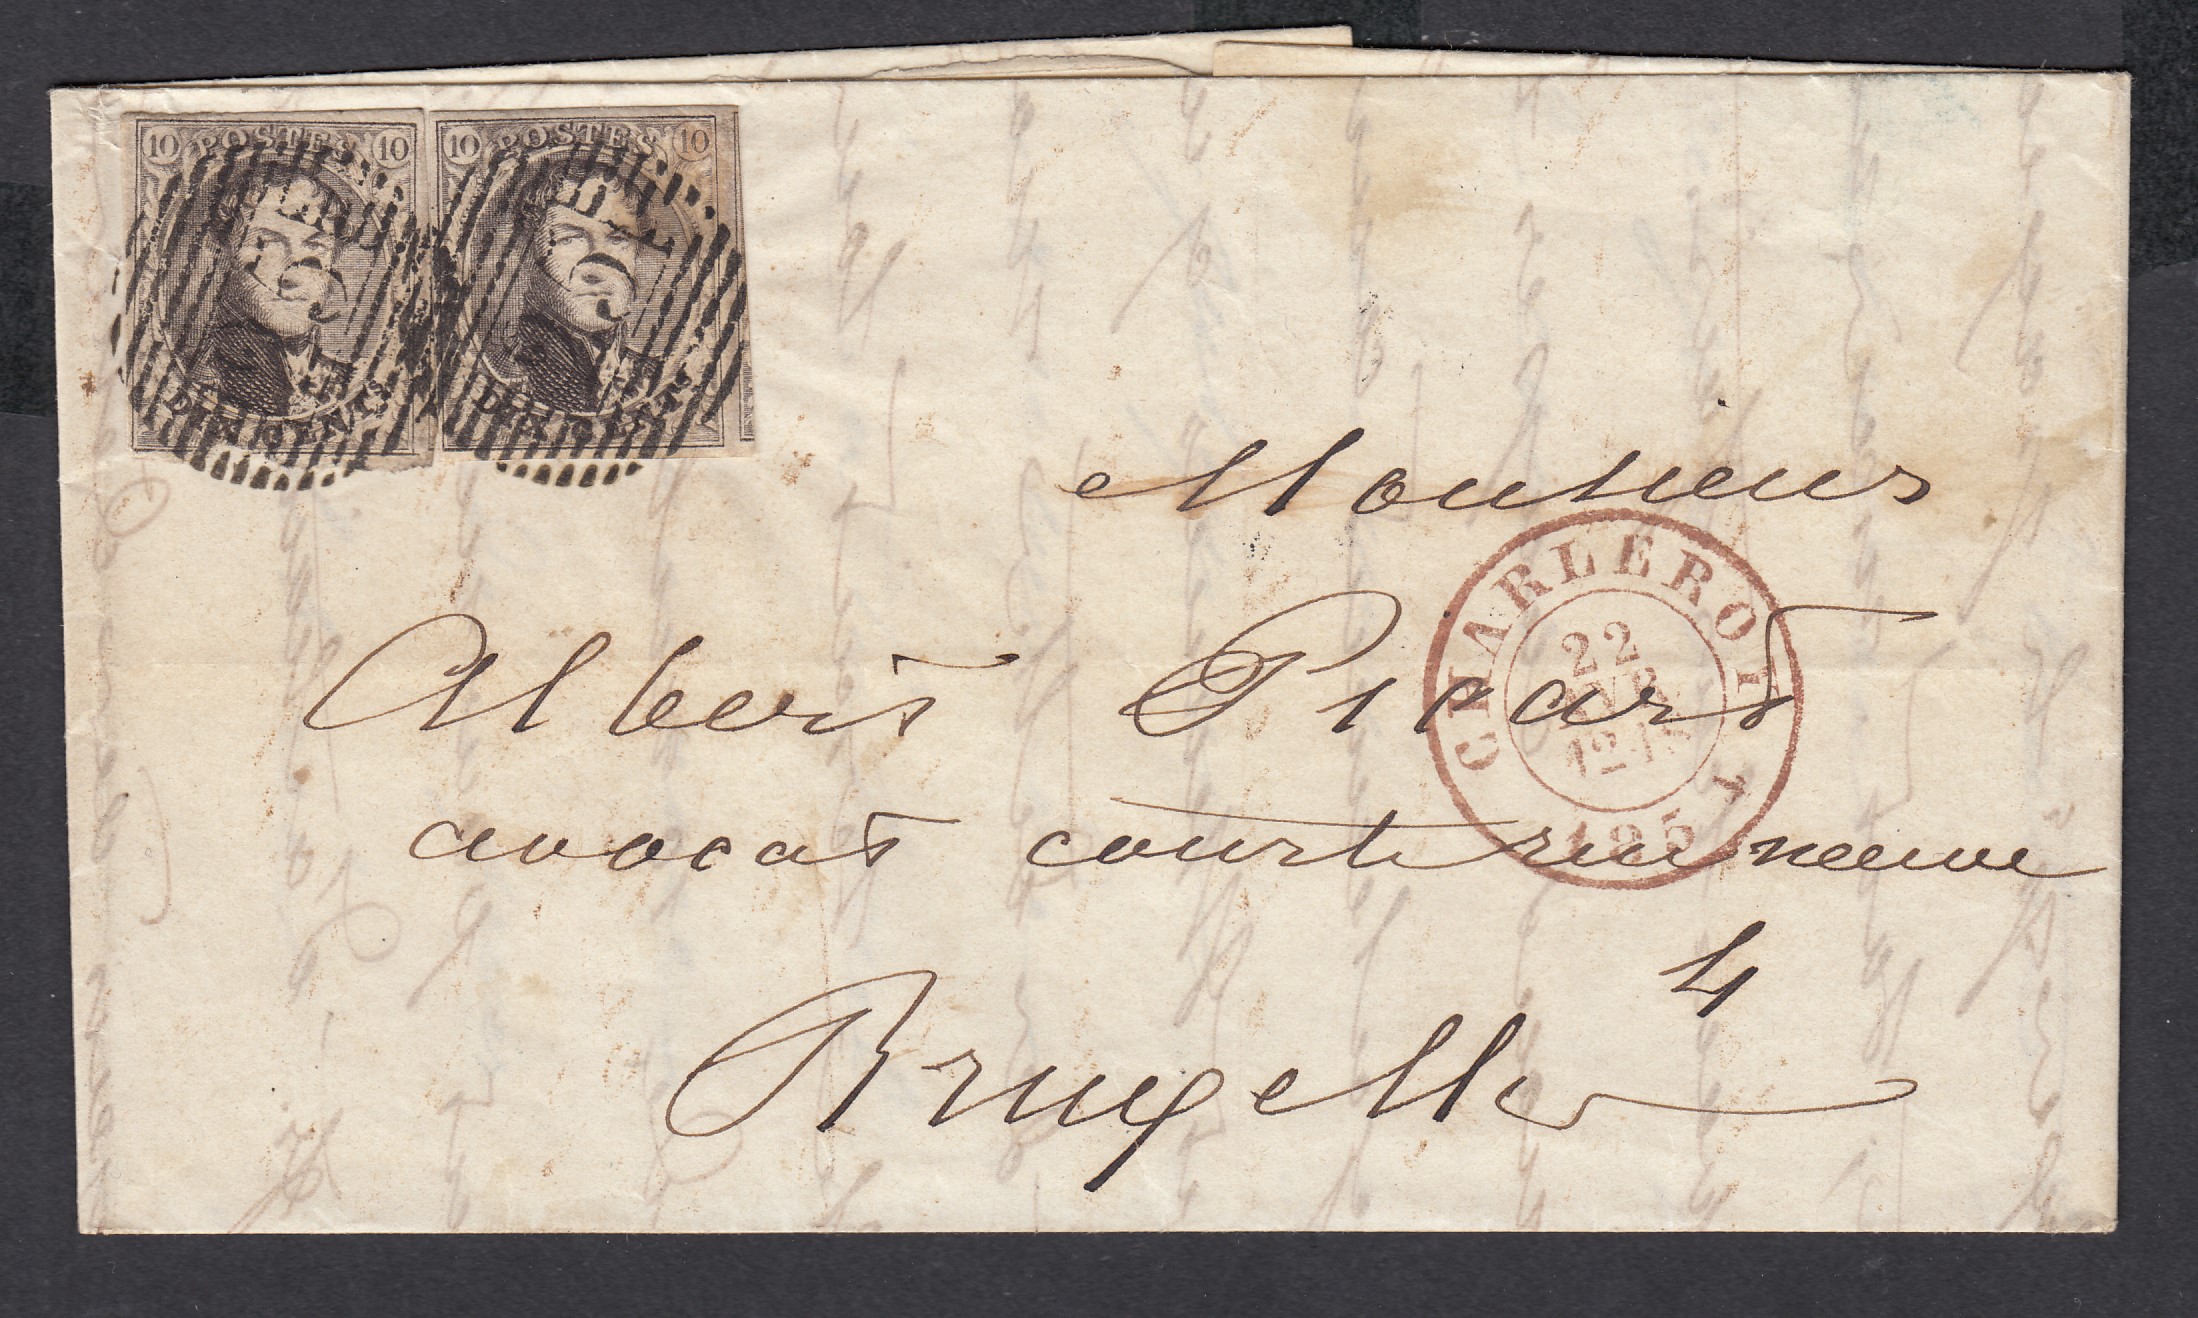 10 POSTES 10
DIX CENTS
10 POSTES 10
DIX CENTS
Monsieur
Albert Picart
avocat courte rue neuve
4
Bruxelles
CHARLEROI
22
AVR
185